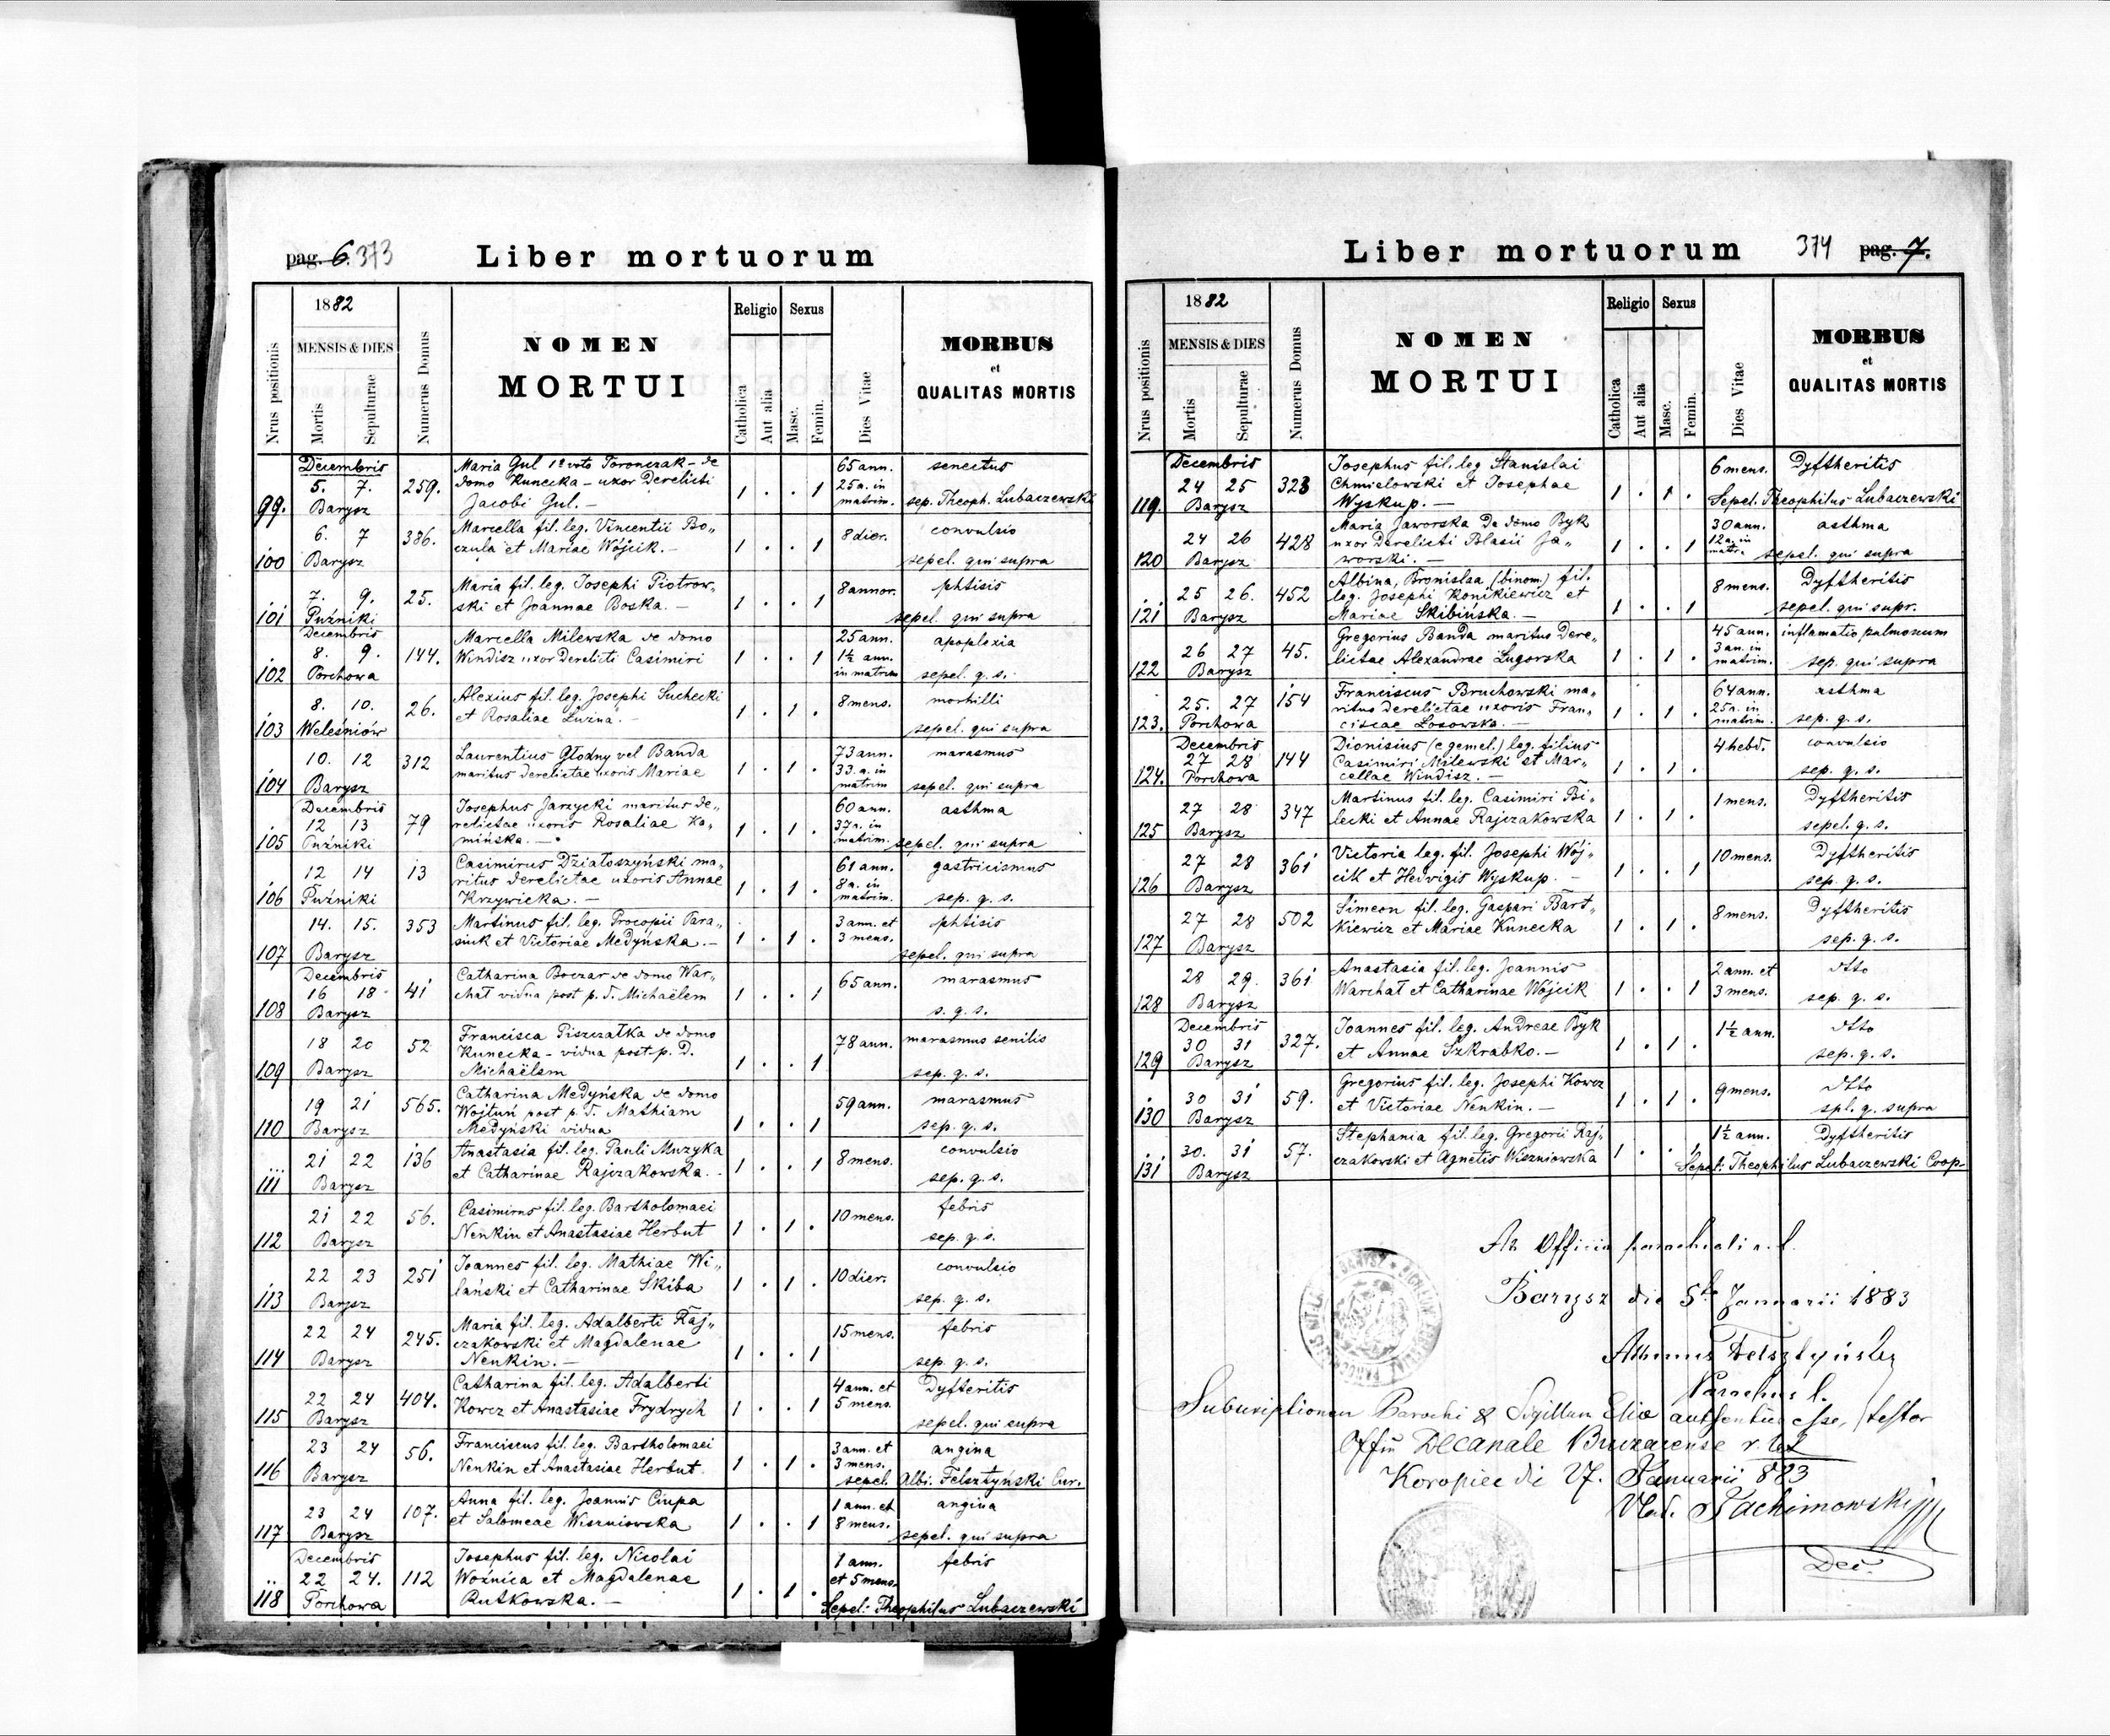 pag. 6. 373
Liber mortuorum
Nrus positionis
1882
MENSIS & DIES
Mortis
Sepulturae
Numerus Domus
NOMEN
MORTUI
Religio
Catholica
Aut alia
Sexus
Masc.
Femin.
Dies Vitae
MORBUS
et
QUALITAS MORTIS
99. Decembris 5. 7. Barysz 259. Maria Gul 1º voto Toronczak - de
domo Kunecka - uxor derelicti
Jacobi Gul. - 1 . . 1 65 ann. 25 a. in matrim. senectus
sep. Theoph. Lubaczewski
100 6. 7 Barysz 386. Marcella fil. leg. Vincentii Bo„
czula et Mariae Wójcik. - 1 . . 1 8 dier. convulsio
sepel. qui supra
101 7. 9. Puźniki 25. Maria fil. leg. Josephi Piotrow„
ski et Joannae Boska. - 1 . . 1 8 annor. phtisis
sepel. qui supra
102 Decembris 8. 9. Porchowa 144. Marcella Milewska de domo
Windisz uxor derelicti Casimiri 1 . . 1 25 ann. 1½ ann. in matrim apoplexia
sepel. q. s.
103 8. 10. Weleśniów 26. Alexius fil. leg. Josephi Suchecki
et Rosaliae Luzna. - 1 . 1 . 8 mens. morbilli
sepel. qui supra
104 10. 12 Barysz 312 Laurentius Głodny vel Banda
maritus derelictae uxoris Mariae 1 . 1 . 73 ann. 33. a. in matrim marasmus
sepel. qui supra
105 Decembris 12 13 Puźniki 79 Josephus Jarzycki maritus de„
relictae uxoris Rosaliae Ka„
mińska. - 1 . 1 . 60 ann. 37 a. in matrim. asthma
sepel. qui supra
106 12 14 Puźniki 13 Casimirus Działoszyński ma„
ritus derelictae uxoris Annae
Krzywicka. - 1 . 1 . 61 ann. 8 a. in matrim. gastricismus
sep. q. s.
107 14. 15. Barysz 353 Martinus fil. leg. Procopii Para„
siuk et Victoriae Medyńska. - 1 . 1 . 3 ann. et 3 mens. phtisis
sepel. qui supra
108 Decembris 16 18 Barysz 41 Catharina Boczar de domo War„
chał vidua post p. d. Michaëlem 1 . . 1 65 ann. marasmus
s. q. s.
109 18 20 Barysz 52 Francisca Piszczałka de domo
Kunecka - vidua post p. d.
Michaëlem 1 . . 1 78 ann. marasmus senilis
sep. q. s.
110 19 21 Barysz 565. Catharina Medyńska de domo
Wojtuń post p. d. Mathiam
Medyński vidua 1 . . 1 59 ann. marasmus
sep. q. s.
111 21 22 Barysz 136 Anastasia fil. leg. Pauli Muzyka
et Catharinae Rajczakowska. - 1 . . 1 8 mens. convulsio
sep. q. s.
112 21 22 Barysz 56. Casimirus fil. leg. Bartholomaei
Nenkin et Anastasiae Herbut 1 . 1 . 10 mens. febris
sep. q. s.
113 22 23 Barysz 251 Joannes fil. leg. Mathiae Wi„
lański et Catharinae Skiba 1 . 1 . 10 dier. convulsio
sep. q. s.
114 22 24 Barysz 245. Maria fil. leg. Adalberti Raj„
czakowski et Magdalenae
Nenkin. - 1 . . 1 15 mens. febris
sep. q. s.
115 22 24 Barysz 404. Catharina fil. leg. Adalberti
Kowcz et Anastasiae Frydrych 1 . . 1 4 ann. et 5 mens. Dyfteritis
sepel. qui supra
116 23 24 Barysz 56. Franciscus fil. leg. Bartholomaei
Nenkin et Anastasiae Herbut. 1 . 1 . 3 ann. et 3 mens. angina
sepel. Alb. Felsztyński Cur.
117 23 24 Barysz 107. Anna fil. leg. Joannis Ciupa
et Salomeae Wiszniowska 1 . . 1 1 ann. et 8 mens. angina
sepel. qui supra
118 Decembris 22 24. Porchowa 112 Josephus fil. leg. Nicolai
Woźnica et Magdalenae
Rutkowska. - 1 . 1 . 1 ann. et 5 mens. febris
Sepel: Theophilus Lubaczewski
Liber mortuorum
374 pag. 7.
Nrus positionis
1882
MENSIS & DIES
Mortis
Sepulturae
Numerus Domus
NOMEN
MORTUI
Religio
Catholica
Aut alia
Sexus
Masc.
Femin.
Dies Vitae
MORBUS
et
QUALITAS MORTIS
119. Decembris 24 25 Barysz 323 Josephus fil. leg Stanislai
Chmielowski et Josephae
Wyskup. - 1 . 1 . 6 mens. Dyftheritis
Sepel. Theophilus Lubaczewski
120 24 26 Barysz 428 Maria Jaworska de domo Byk
uxor derelicti Blasii Ja„
worski. - 1 . . 1 30 ann. 12 a. in matri. asthma
sepel. qui supra
121 25 26. Barysz 452 Albina, Bronislaa (binom.) fil.
leg. Josephi Konikiewicz et
Mariae Skibińska. - 1 . . 1 8 mens. Dyftheritis
sepel. qui supr.
122 26 27 Barysz 45. Gregorius Banda maritus dere„
lictae Alexandrae Lugorska 1 . 1 . 45 ann. 3 an. in matrim. inflamatio pulmonum
sep. qui supra
123. 25. 27 Porchowa 154 Franciscus Bruchowski ma„
ritus derelictae uxoris Fran„
ciscae Losowska. - 1 . 1 . 64 ann. 25 a. in matrim. asthma
sep. q. s.
124. Decembris 27 28 Porchowa 144 Dionisius (e gemel.) leg. filius
Casimiri Milewski et Mar„
cellae Windisz. - 1 . 1 . 4 hebd. convulsio
sep. q. s.
125 27 28 Barysz 347 Martinus fil. leg. Casimiri Bi„
lecki et Annae Rajczakowska 1 . 1 . 1 mens. Dyftheritis
sepel. q. s.
126 27 28 Barysz 361 Victoria leg. fil. Josephi Wój„
cik et Hedvigis Wyskup. - 1 . . 1 10 mens. Dyftheritis
sep. q. s.
127 27 28 Barysz 502 Simeon fil. leg. Gaspari Bart„
kiewicz et Mariae Kunecka 1 . 1 . 8 mens. Dyftheritis
sep. q. s.
128 28 29. Barysz 361 Anastasia fil. leg. Joannis
Warchał et Catharinae Wójcik 1 . . 1 2 ann. et 3 mens. dtto
sep. q. s.
129 Decembris 30 31 Barysz 327. Joannes fil. leg. Andreae Byk
et Annae Szkrabko. - 1 . 1 . 1½ ann. dtto
sep. q. s.
130 30 31 Barysz 59. Gregorius fil. leg. Josephi Kowcz
et Victoriae Nenkin. - 1 . 1 . 9 mens. dtto
spl. q. supra
131 30. 31 Barysz 57. Stephania fil. leg. Gregorii Raj„
czakowski et Agnetis Wiszniowska 1 . . 1 1½ ann. Dyftheritis
Sepel: Theophilus Lubaczewski Coop.
Ab Officio parochiali r. l.
Barysz die 5te Januarii 1883
Felsztyński
Parochus l.
Subscriptionem Parochi & Sigillum authentica esse, testor
Decanale
Koropiec die 27. Januarii 883
Vlad. Jachimowski
Dec.